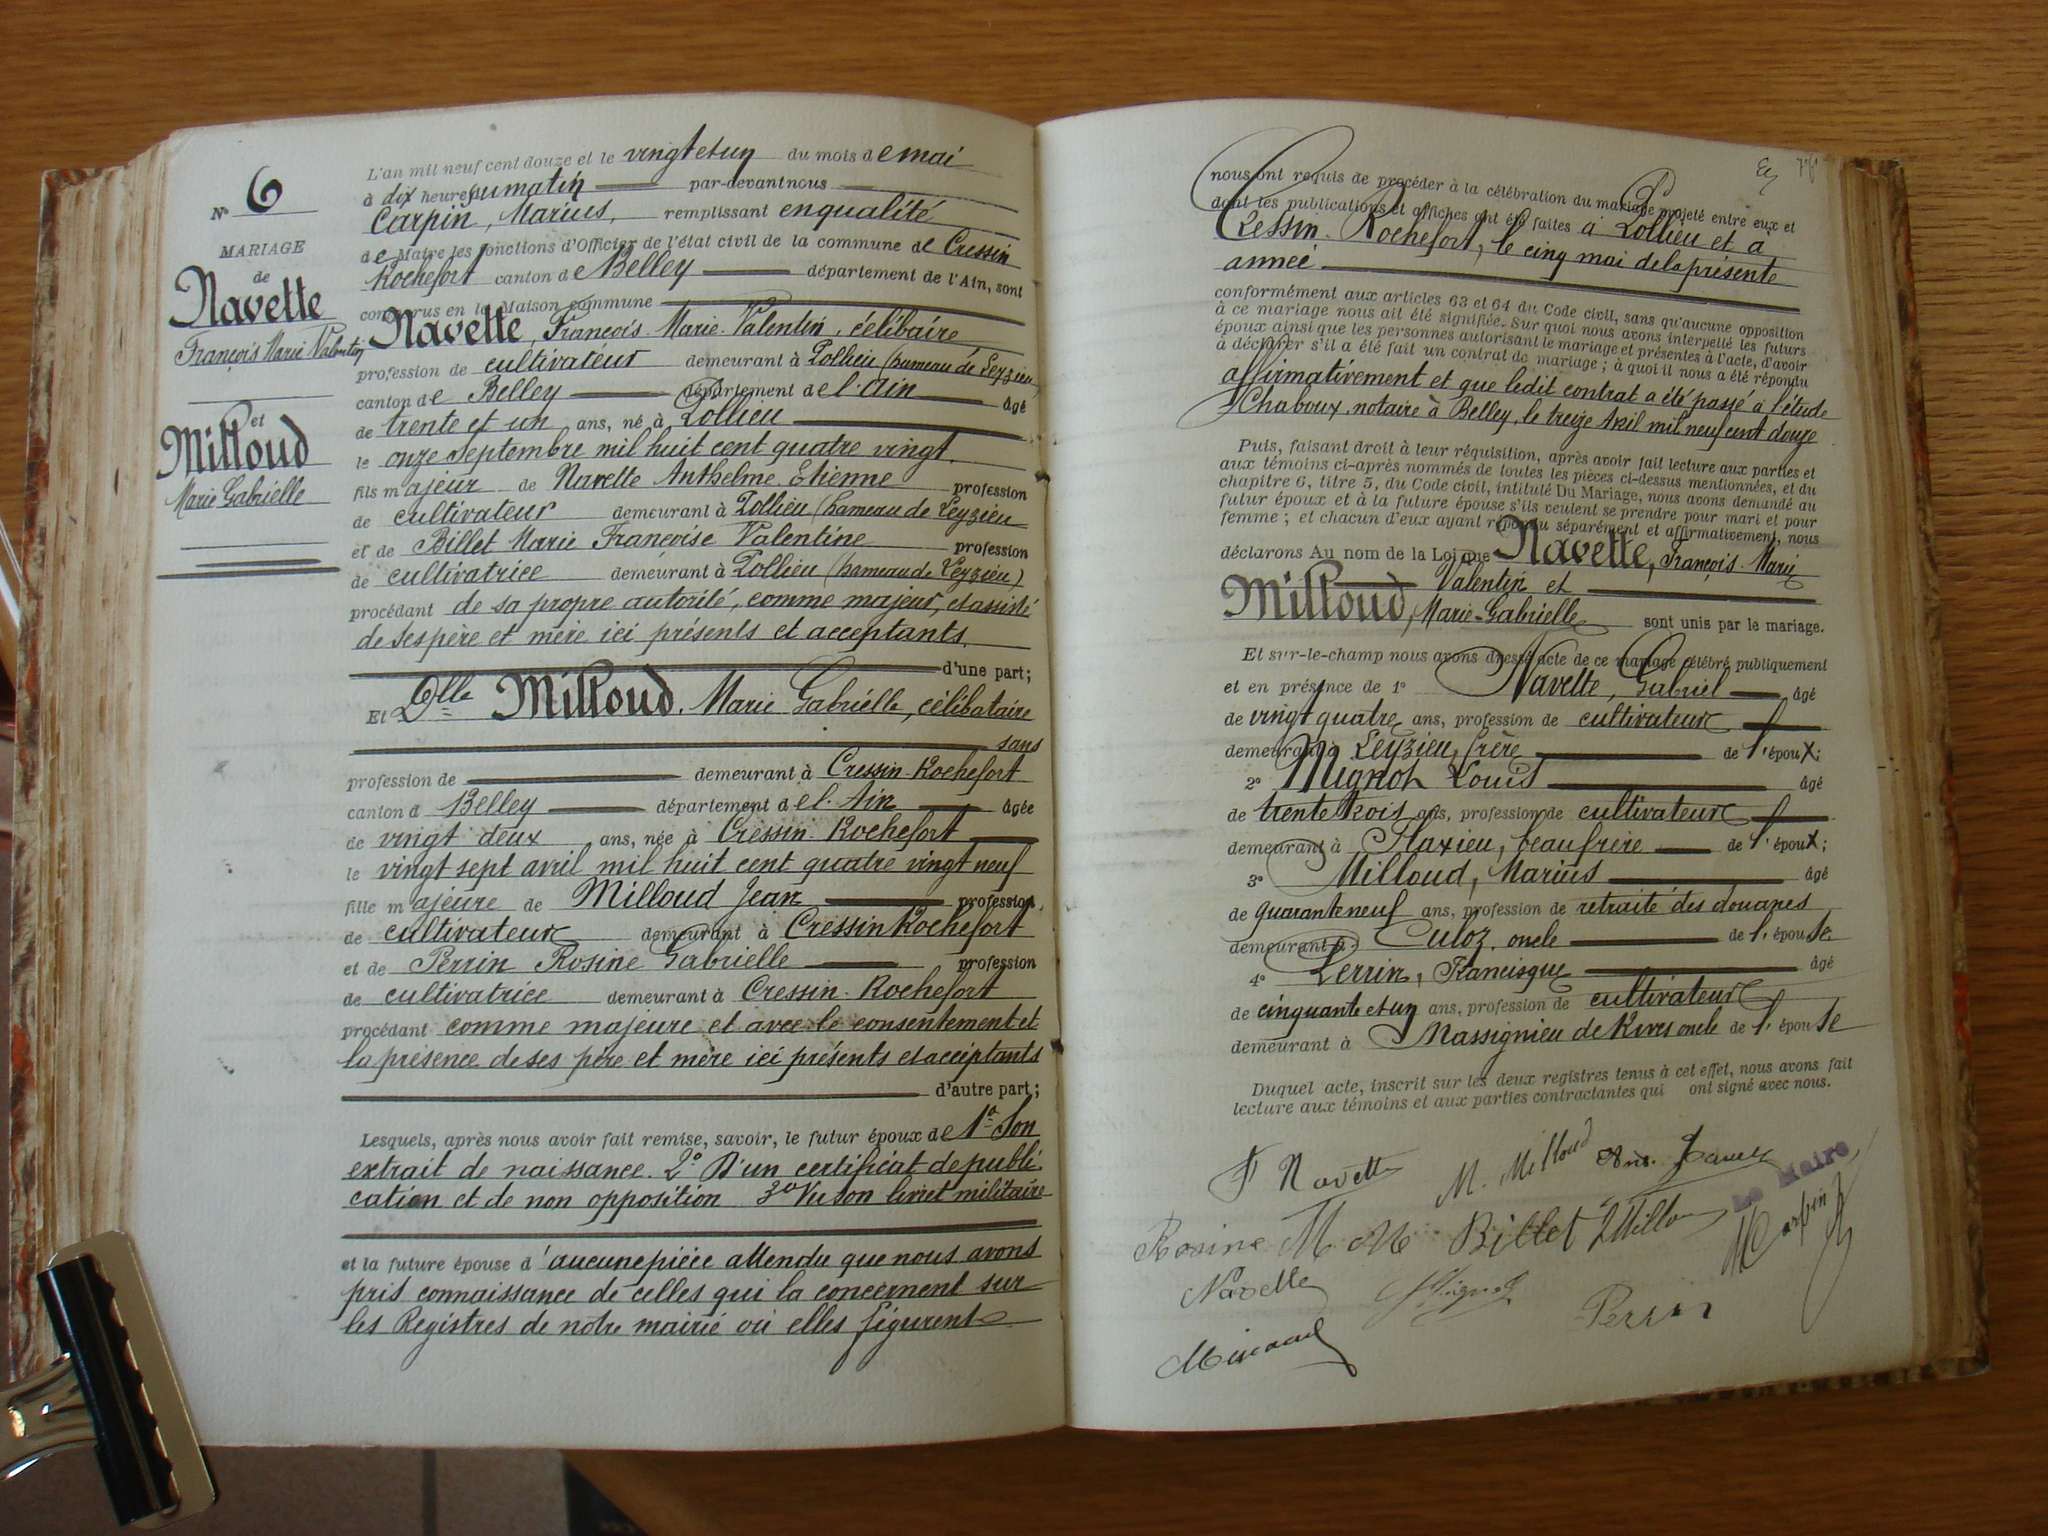 N° 6
MARIAGE
de
Navette
François Marie Valentin
et
Milloud
Marie Gabrielle
L'an mil neuf cent douze et le vingt et un du mois de mai
à dix heures du matin par-devant nous
Carpin, Marius, remplissant en qualité
de Maire les fonctions d'Officier de l'état civil de la commune de Cressin
Rochefort canton de Belley département de l'Ain, sont
comparus en la Maison commune
Navette, François-Marie-Valentin, célibaire,
profession de cultivateur demeurant à Pollieu (hameau de Leyzieu
canton de Belley département de l'Ain âgé
de trente et un ans, né à Pollieu
le onze septembre mil huit cent quatre vingt.
fils majeur de Navette Anthelme Etienne profession
de cultivateur demeurant à Pollieu (hameau de Leyzieu
et de Billet Marie Françoise Valentine profession
de cultivatrice demeurant à Pollieu (hameau de Leyzieu)
procédant de sa propre autorité, comme majeur, et assisté
de ses père et mère ici présents et acceptants.
d'une part;
Et Dlle Milloud, Marie Gabrielle, célibataire
sans
profession de demeurant à Cressin-Rochefort
canton d Belley département de l'Ain âgée
de vingt deux ans, née à Cressin-Rochefort
le vingt sept avril mil huit cent quatre vingt neuf
fille majeure de Milloud Jean profession
de cultivateur demeurant à Cressin Rochefort
et de Perrin Rosine Gabrielle profession
de cultivatrice demeurant à Cressin-Rochefort
procédant comme majeure et avec le consentement et
la présence de ses père et mère ici présents et acceptants
d'autre part;
Lesquels, après nous avoir fait remise, savoir, le futur époux de 1° Son
extrait de naissance. 2° D'un certificat de publi
cation et de non opposition 3° Vu son livret militaire
et la future épouse d'aucune pièce attendu que nous avons
pris connaissance de celles qui la concernent sur
les Registres de notre mairie où elles figurent
nous ont requis de procéder à la célébration du mariage projeté entre eux et
dont les publications et affiches ont été faites à Pollieu et à
Cressin-Rochefort, le cinq mai de la présente
année
conformément aux articles 63 et 64 du Code civil, sans qu'aucune opposition
à ce mariage nous ait été signifiée. Sur quoi nous avons interpellé les futurs
époux ainsi que les personnes autorisant le mariage et présentes à l'acte, d'avoir
à déclarer s'il a été fait un contrat de mariage; à quoi il nous a été répondu
affirmativement et que ledit contrat a été passé à l'étude
Chaboux, notaire à Belley, le treize avril mil neuf cent douze
Puis, faisant droit à leur réquisition, après avoir fait lecture aux parties et
aux témoins ci-après nommés de toutes les pièces ci-dessus mentionnées, et du
chapitre 6, titre 5, du Code civil, intitulé Du Mariage, nous avons demandé au
futur époux et à la future épouse s'ils veulent se prendre pour mari et pour
femme; et chacun d'eux ayant répondu séparément et affirmativement, nous
déclarons Au nom de la Loi que Navette, François-Marie
Valentin et
Milloud, Marie-Gabrielle sont unis par le mariage.
Et sur-le-champ nous avons dressé acte de ce mariage célébré publiquement
et en présence de 1° Navette, Gabriel âgé
de vingt quatre ans, profession de cultivateur
demeurant à Leyzieu, frère de l'époux;
2° Mignot Louis âgé
de trente trois ans, profession de cultivateur
demeurant à Flaxieu, beau frère de l'époux;
3° Milloud, Marius âgé
de quarante neuf ans, profession de retraité des douanes
demeurant à Culoz, oncle de l'épouse
4° Perrin, Francisque âgé
de cinquante et un ans, profession de cultivateur
demeurant à Massignieu de Rives oncle de l'épouse
Duquel acte, inscrit sur les deux registres tenus à cet effet, nous avons fait
lecture aux témoins et aux parties contractantes qui ont signé avec nous.
F Navette M. Milloud
Le Maire,
Rosine M Billet
M Carpin
Navette Mignot Perrin